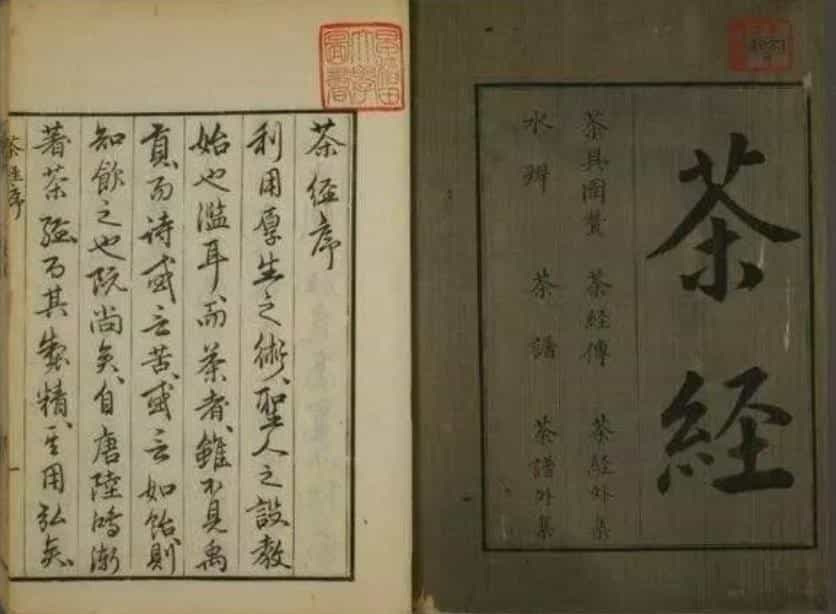 茶経
茶具圖賛 茶経傳 茶経外集
水辨 茶譜 茶譜外集
早稲田
大學
圖書
茶経序
利用厚生之術、聖人之設教
始也濫耳、而茶者、雖不見禹
貢、而詩或云苦、或云如飴、則
知飲之也既尚矣、自唐陸鴻漸
著茶経、而其製精、其用弘矣、
茶経序 一